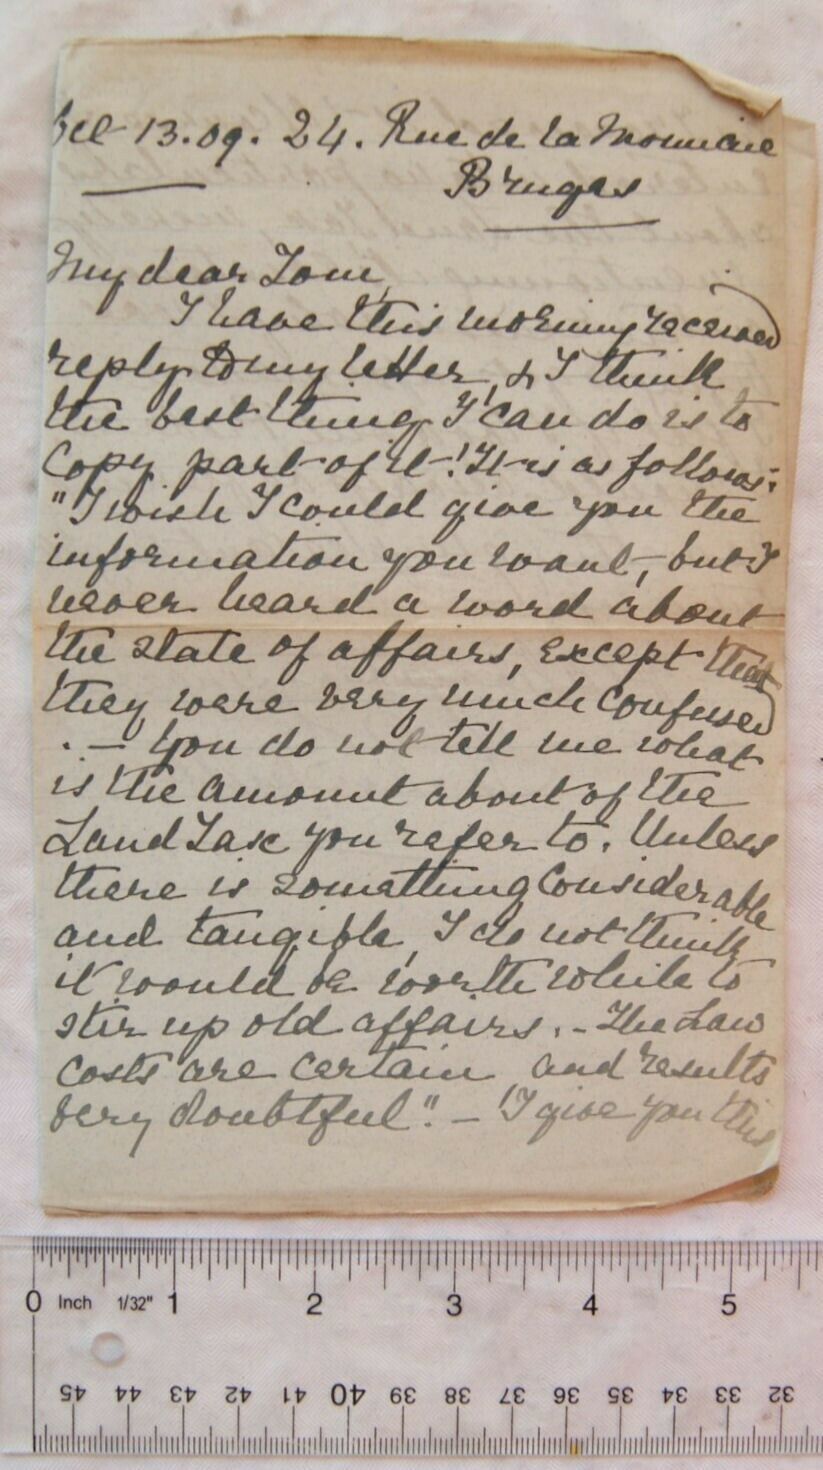 13.09. 24. Rue de la Monnaie
Bruges
My dear Tom,
I have this morning received
reply to my letter, & I think
the best thing I can do is to
copy part of it! It is as follows:
"I wish I could give you the
information you want, but I
never heard a word about
the state of affairs, except that
they were very much confused
. — You do not tell me what
is the amount about of the
Land Tax you refer to. Unless
there is something considerable
and tangible, I do not think
it would be worth while to
stir up old affairs. - The Law
costs are certain and results
very doubtful". — I give you this
0 Inch 1/32" 1 2 3 4 5
45 44 43 42 41 40 39 38 37 36 35 34 33 32